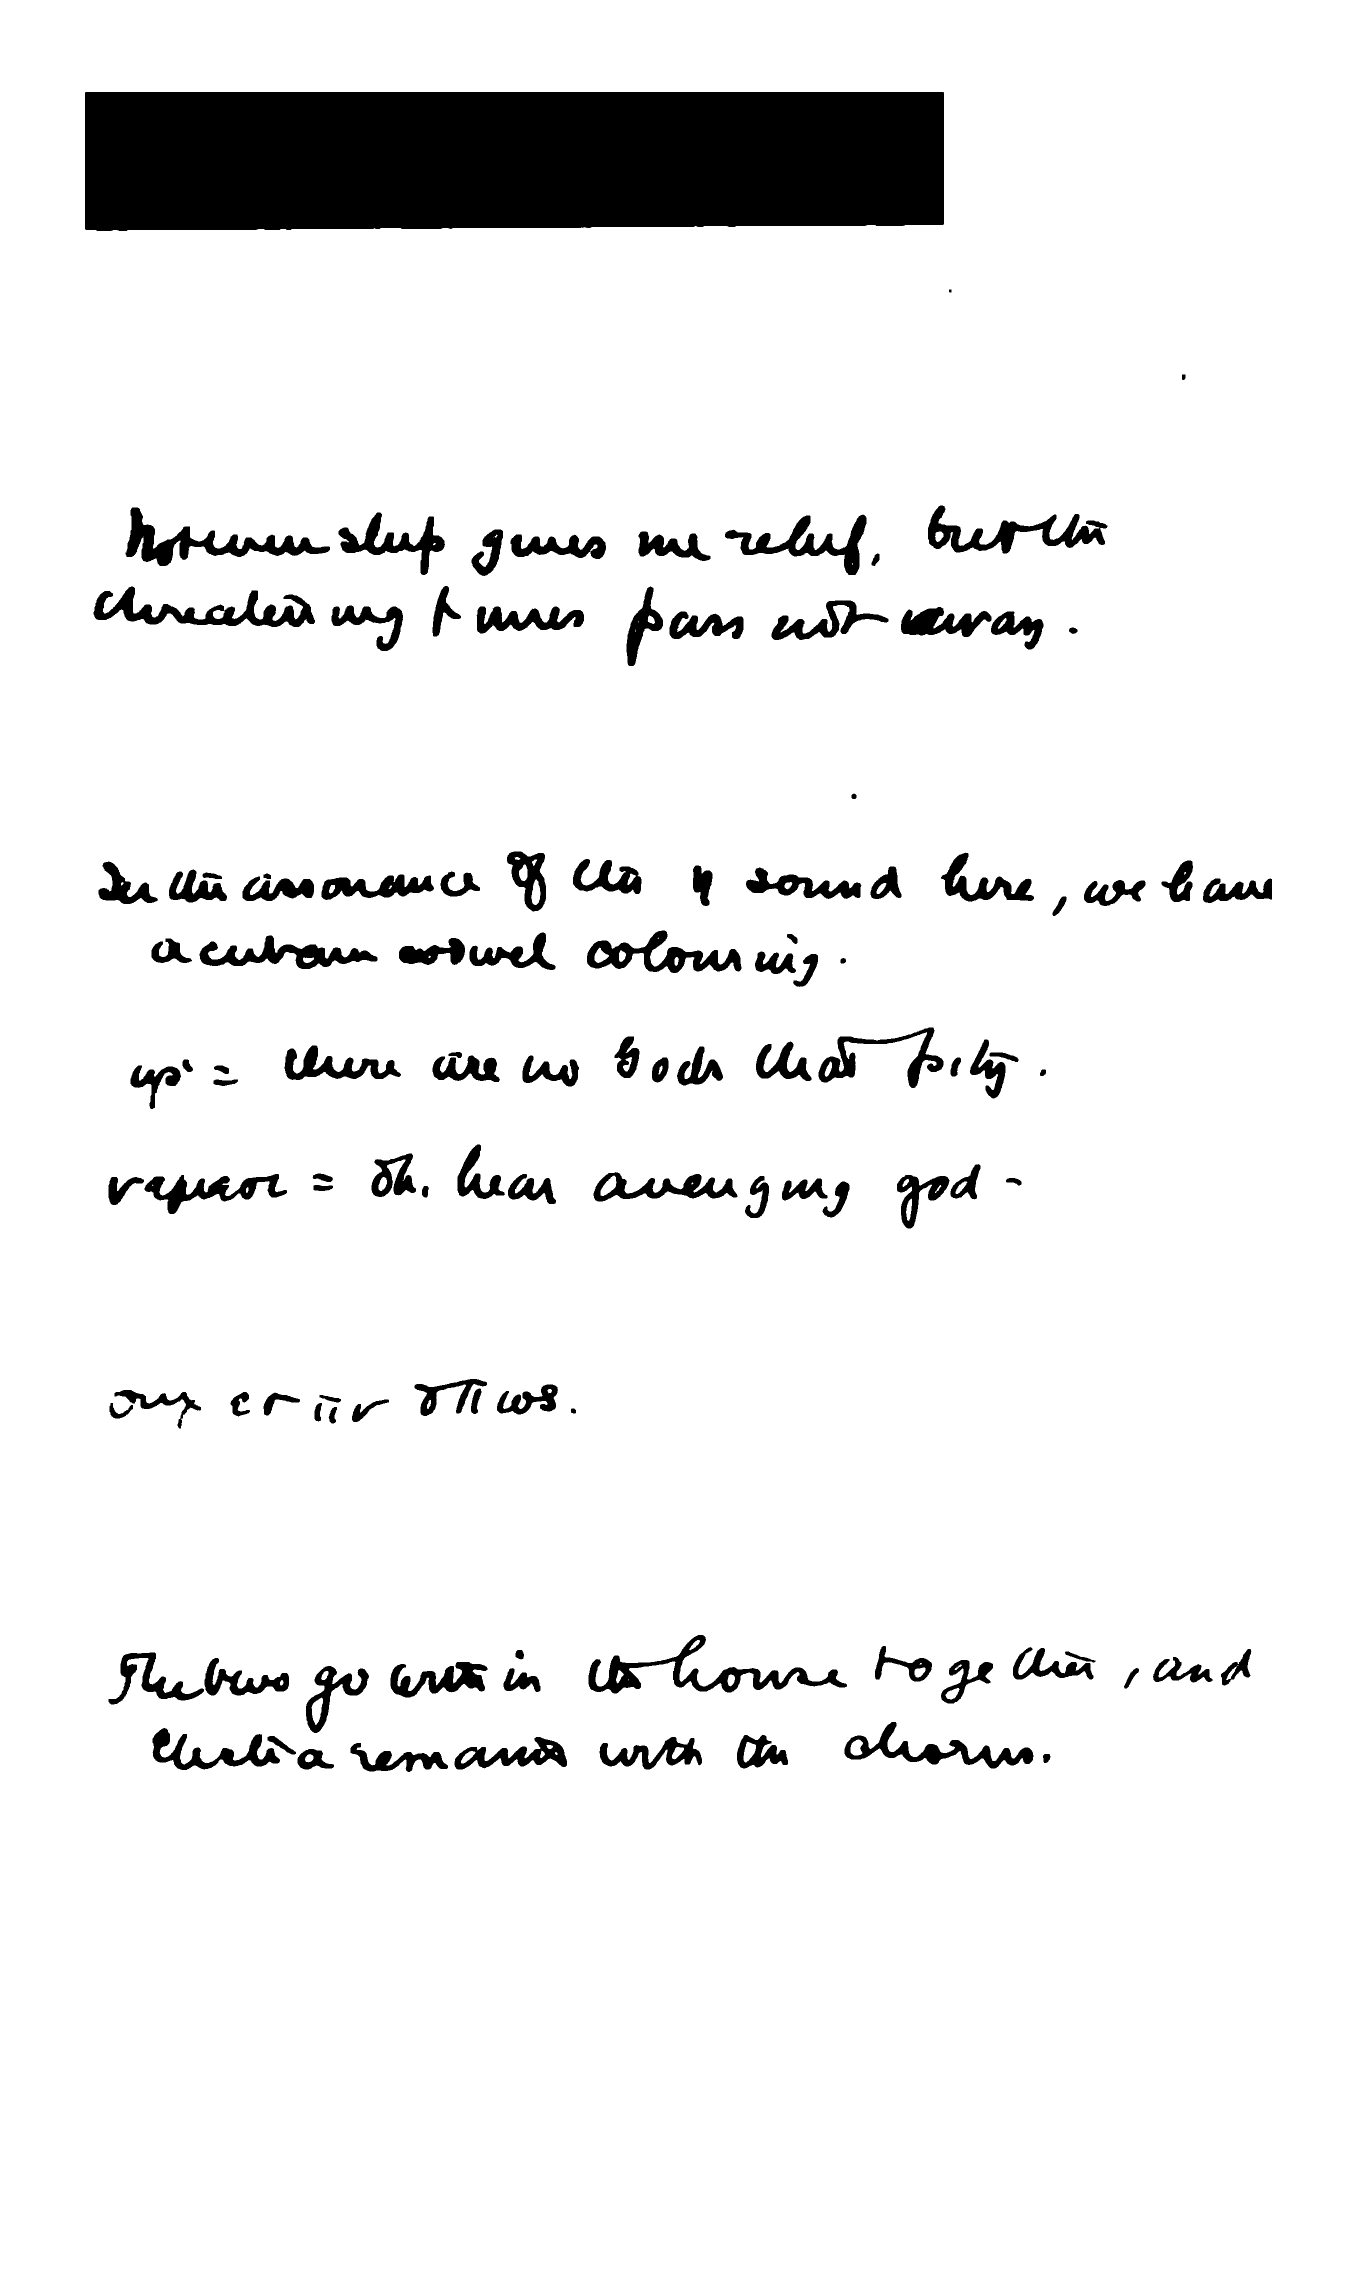 Not even sleep gives me relief, but the
threatening times pass not away.
In the assonance of the η sound here, we have
a certain vowel colouring.
= there are no Gods that pity.
= Oh. hear avenging god -
ουκ εστιν οπως.
The two go within the house together, and
Electra remains with the chorus.